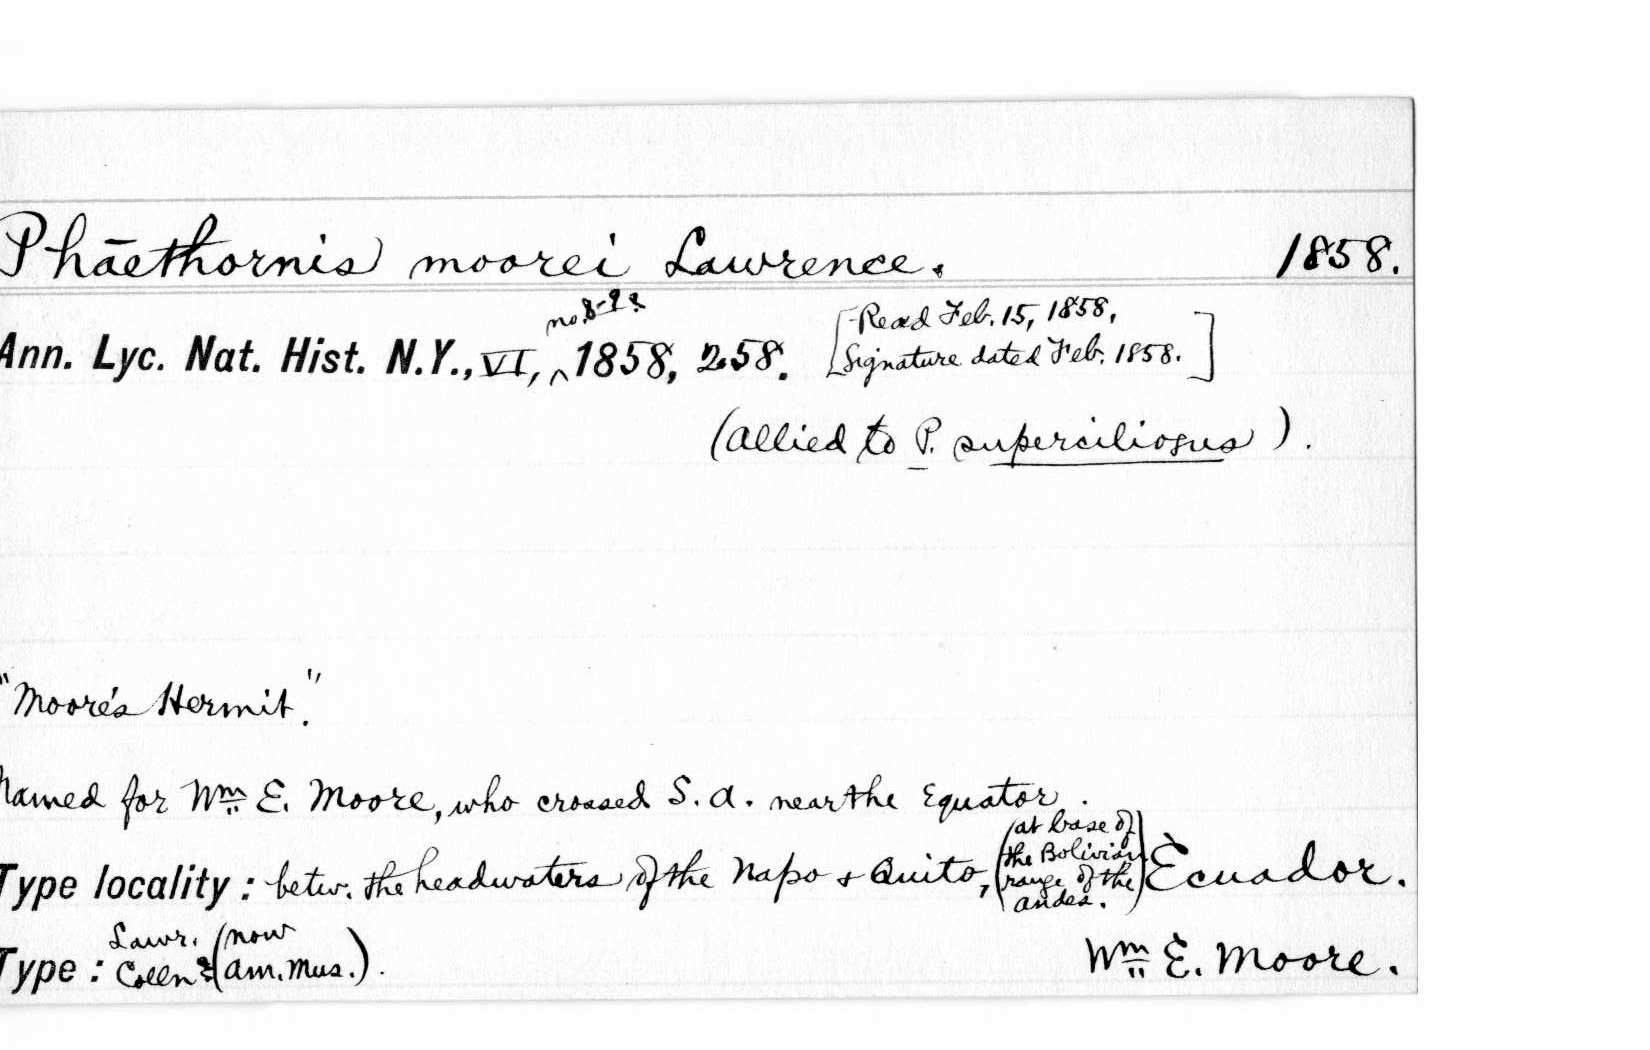 Phāethornis moorei Lawrence. 1858.
Ann. Lyc. Nat. Hist. N.Y., VI, ^ no. 8-9? 1858, 258. [Read Feb. 15, 1858,
Signature dated Feb. 1858.]
(allied to P. superciliosus).
"Moore's Hermit."
Named for Wm E. Moore, who crossed S. A. near the Equator.
Type locality: betw. the headwaters of the Napo & Quito, (at base of
the Bolivian
range of the
Andes.) Ecuador.
Type: Lawr. Colln? (now Am. Mus.). Wm E. Moore.